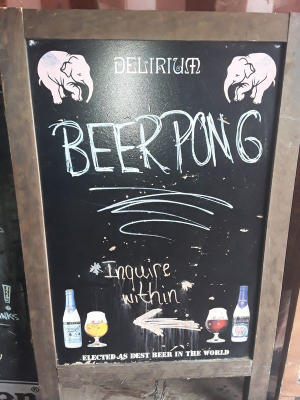 DELIRIUM
BEER PONG
Inquire
within
ELECTED AS BEST BEER IN THE WORLD